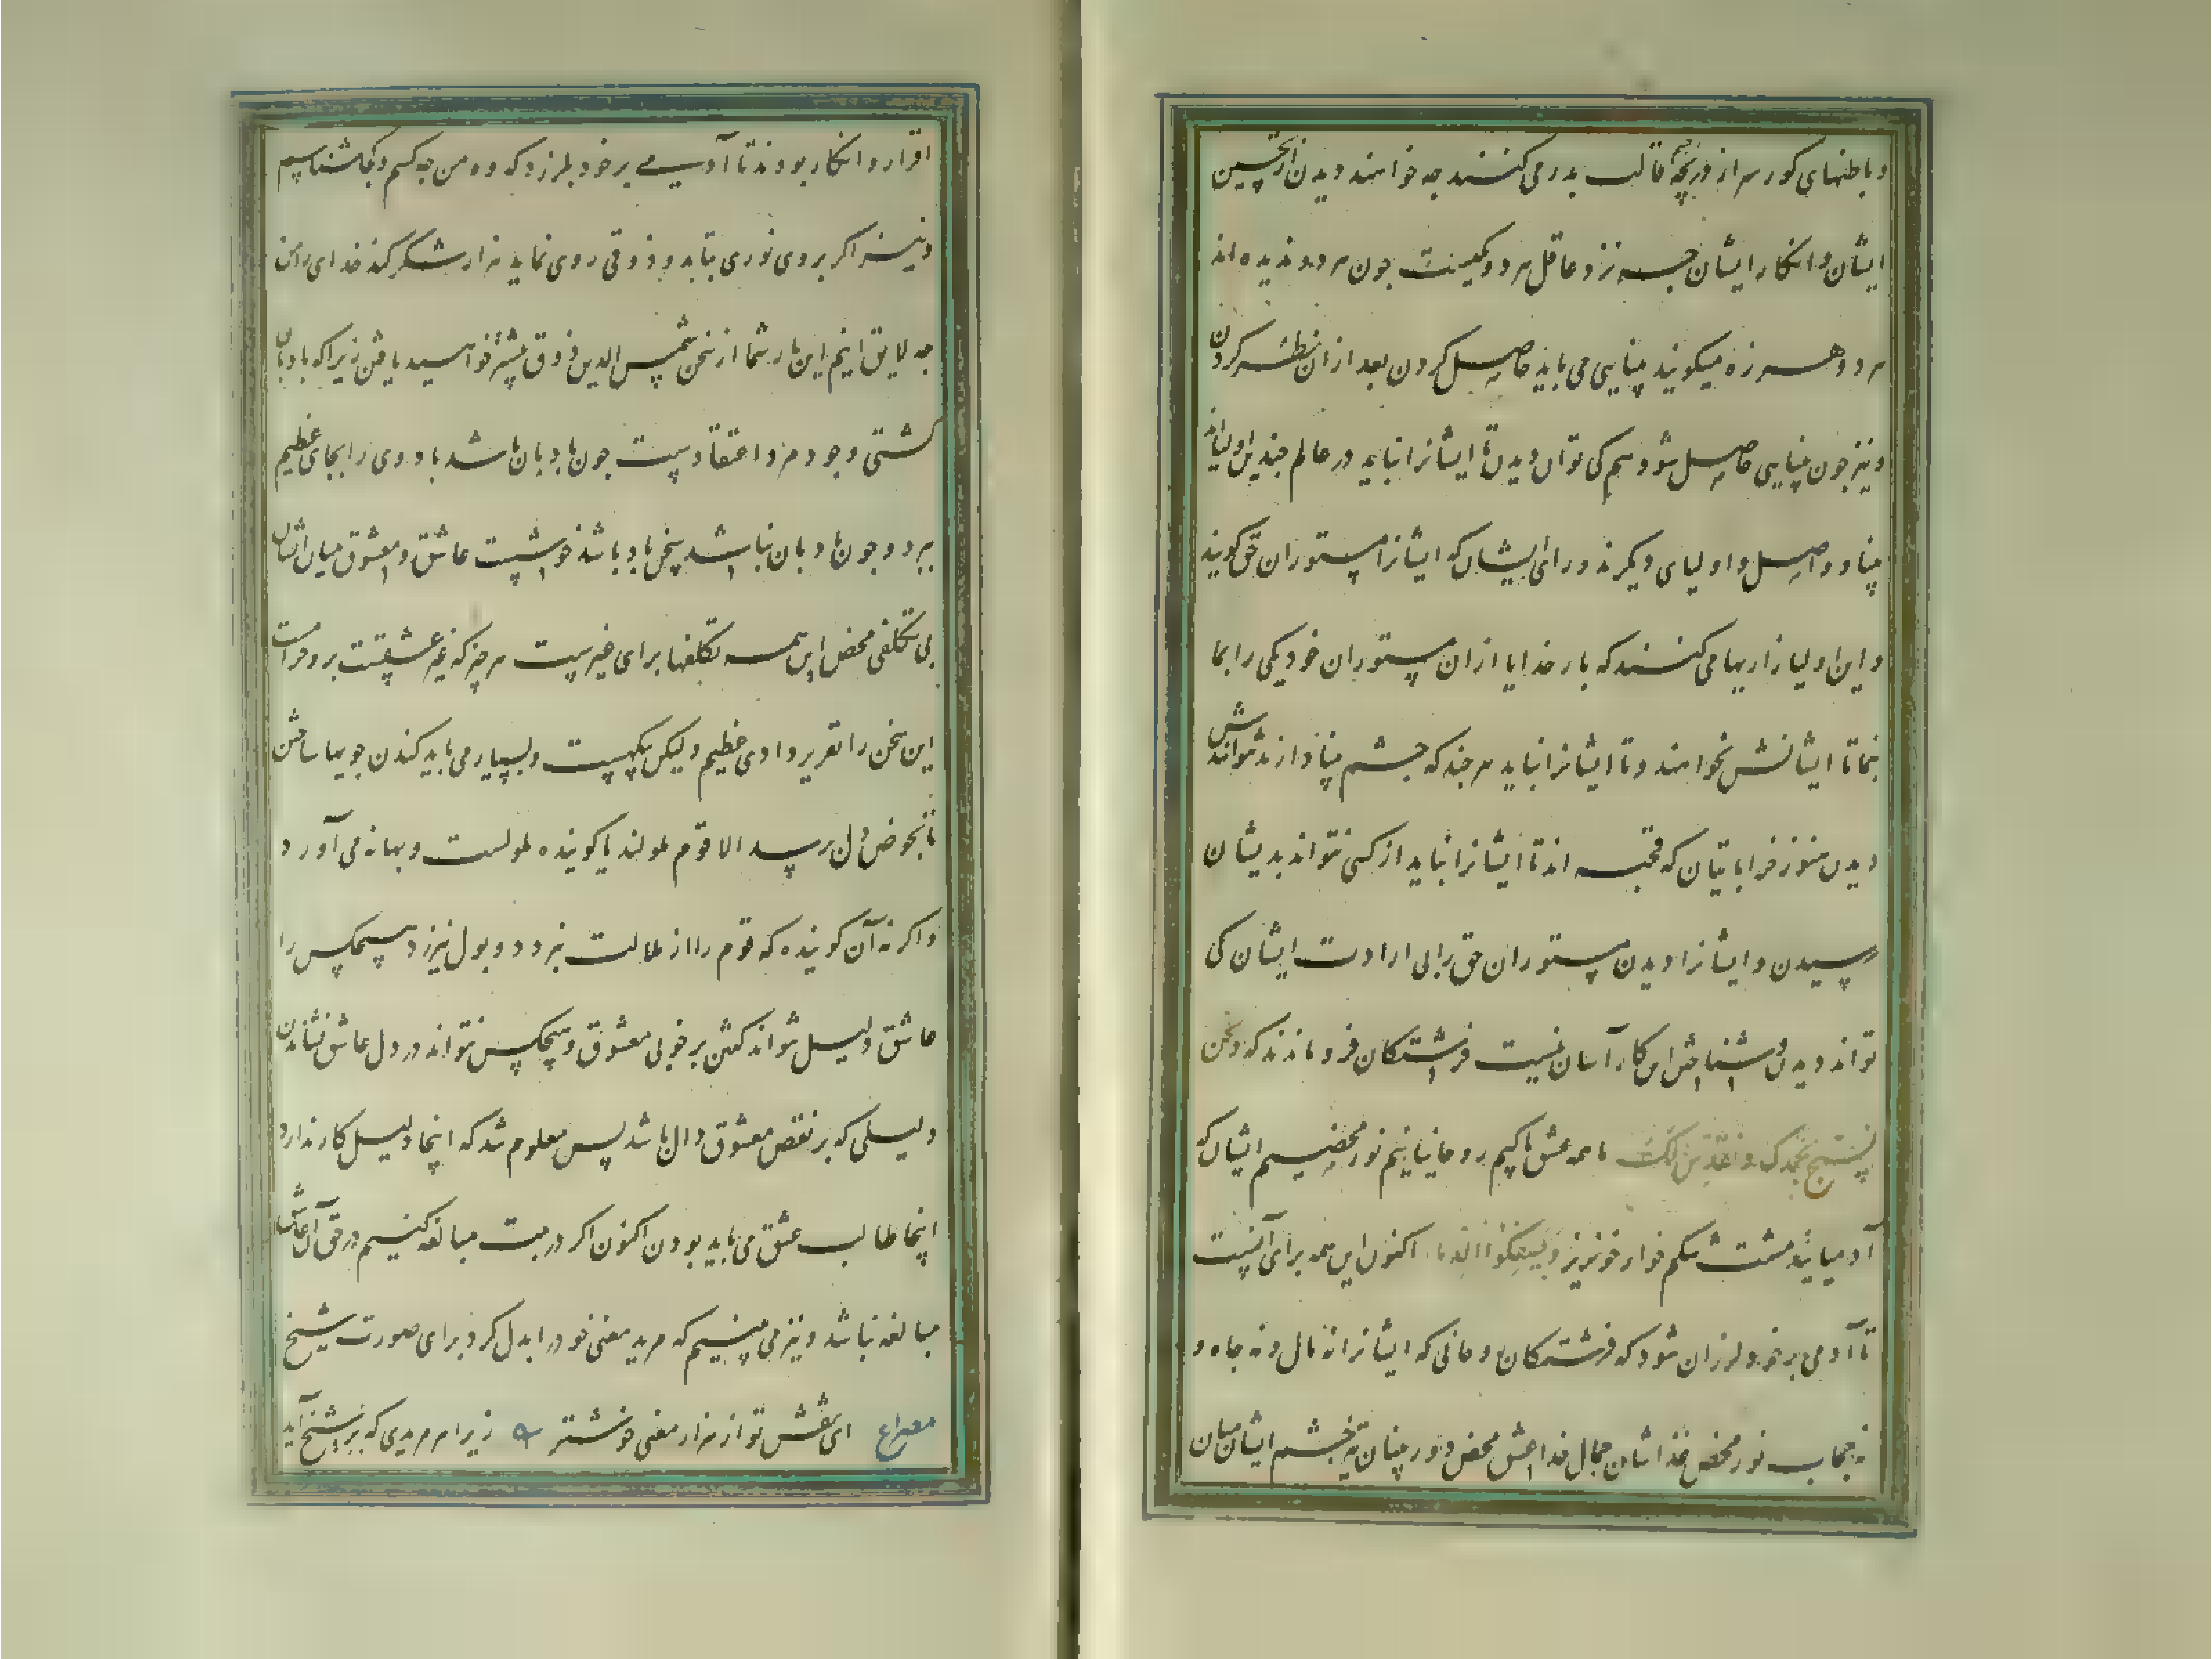 و باطنهای کور سر از دریچهٔ قالب بدر می کنند چه خواهند دیدن از تحسین
ایشان و انکار ایشان چه نزد عاقل هر دو یکیست چون هر دو ندیده اند
هر دو هرزه میکویند بینایی می باید حاصل کردن بعد از ان نظر کردن
و نیز چون بینایی حاصل شود هم کی توان دیدن تا ایشانرا نباید در عالم چندین اولیااند
بینا و واصل و اولیای دیکرند ورای ایشان که ایشانرا مستوران حق کویند
و این اولیا زاریها می کنند که بار خدایا از ان مستوران خود یکی را بما
بنما تا ایشانش نخواهند و تا ایشانرا نباید هر چند که چشم بینا دارند نتوانندش
دیدن هنوز خراباتیان که قحبه اند تا ایشانرا نباید از کسی نتواند بدیشان
رسیدن و ایشانرا دیدن مستوران حق را بی ارادت ایشان کی
تواند دیدن و شناختن این کار آسان نیست فرشتکان فرو ماندند که و نحن
نسبح بحمدک و نقدس لک ما همه عشق ناکیم روحانیانیم نور محضیم ایشان که
آدمیانند مشت شکم خوار خونریز و یسفکوا الدما اکنون این همه برای آنست
تا آدمی بر خود لرزان شود که فرشتکان روحانی که ایشانرا نه مال و نه جاه و
نه حجاب نور محض غذاشان جمال خدا عشق محض دور بینان تیز چشم ایشان میان
اقرار و انکار بودند تا آدمی بر خود بلرزد که وه من چه کسم و کجا شناسم
و نیز اکر بر وی نوری بتابد و ذوقی روی نماید هزار شکر کند خدای را که من
چه لایق اینم این بار شما از سخن شمس الدین ذوق بیشتر خواهید یافتن زیرا که بادبان
کشتی وجود مرد اعتقادست چون بادبان باشد باد وی را بجای عظیم
برد و چون بادبان نباشد سخن باد باشد خوشست عاشق و معشوق میان ایشان
بی تکلفی محض این همه تکلفها برای غیرست هر چیز که غیر عشقست برو حرامست
این سخن را تقریر دادمی عظیم ولیکن بیکهست و بسیار می باید کندن جویها ساختن
تا بحوض دل برسد الا قوم ملولند یا کوینده ملولست و بهانه می آورد
و اکر نه آن کوینده که قوم را از ملالت نبرد دو پول نیرزد هیچکس را
عاشق دلیل نتواند کفتن بر خوبی معشوق و هیچکس نتواند در دل عاشق نشاندن
دلیلی که بر نقص معشوق دال باشد پس معلوم شد که اینجا دلیل کار ندارد
اینجا طالب عشق می باید بودن اکنون اکر در بیت مبالغه کنیم در حق آن عاشق
مبالغه نباشد و نیز می بینیم که مرید معنی خود را بدل کرد برای صورت شیخ
مصراع ای نقش تو از هزار معنی خوشتر زیرا هر مریدی که بر شیخ آید